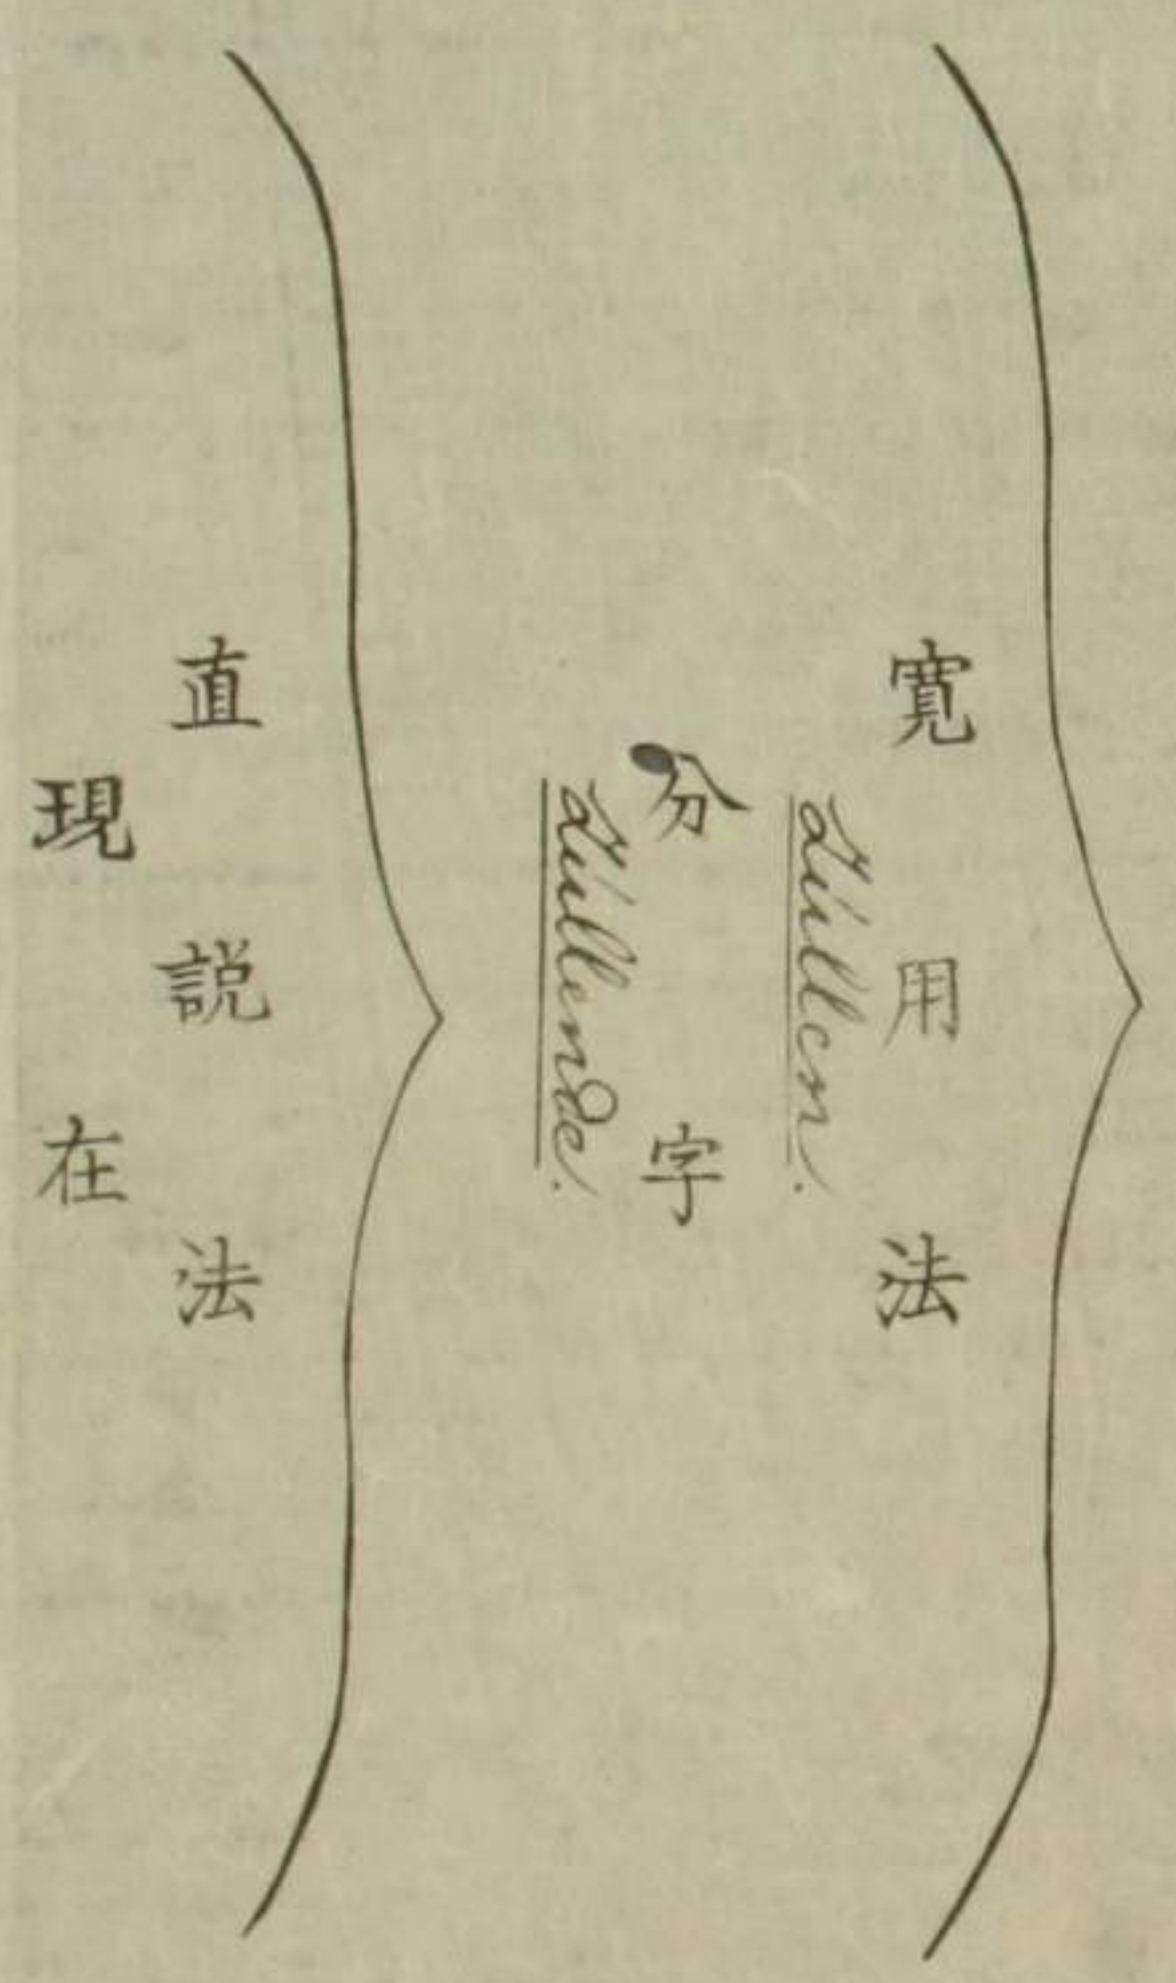 寛用法
Zúllen.
分字
Zúllende.
直説法
現在